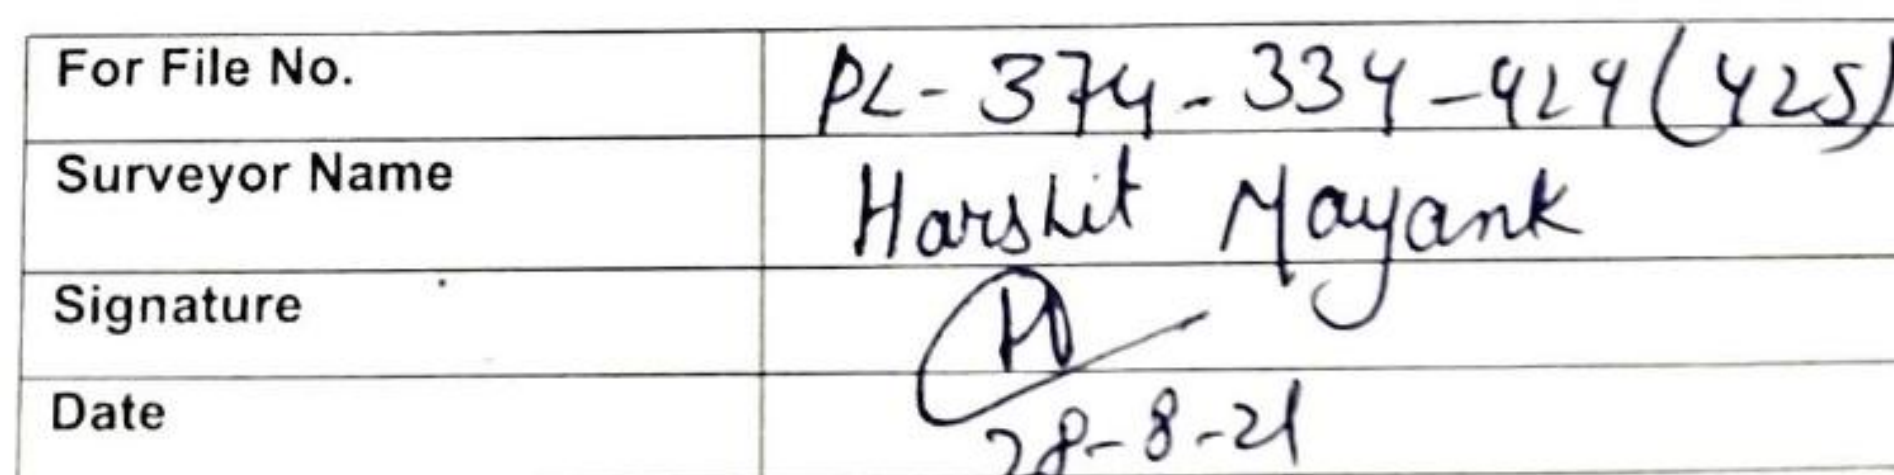 For File No. PL-374-334-424(425)
Surveyor Name Harshit Mayank
Signature
Date 28-8-21